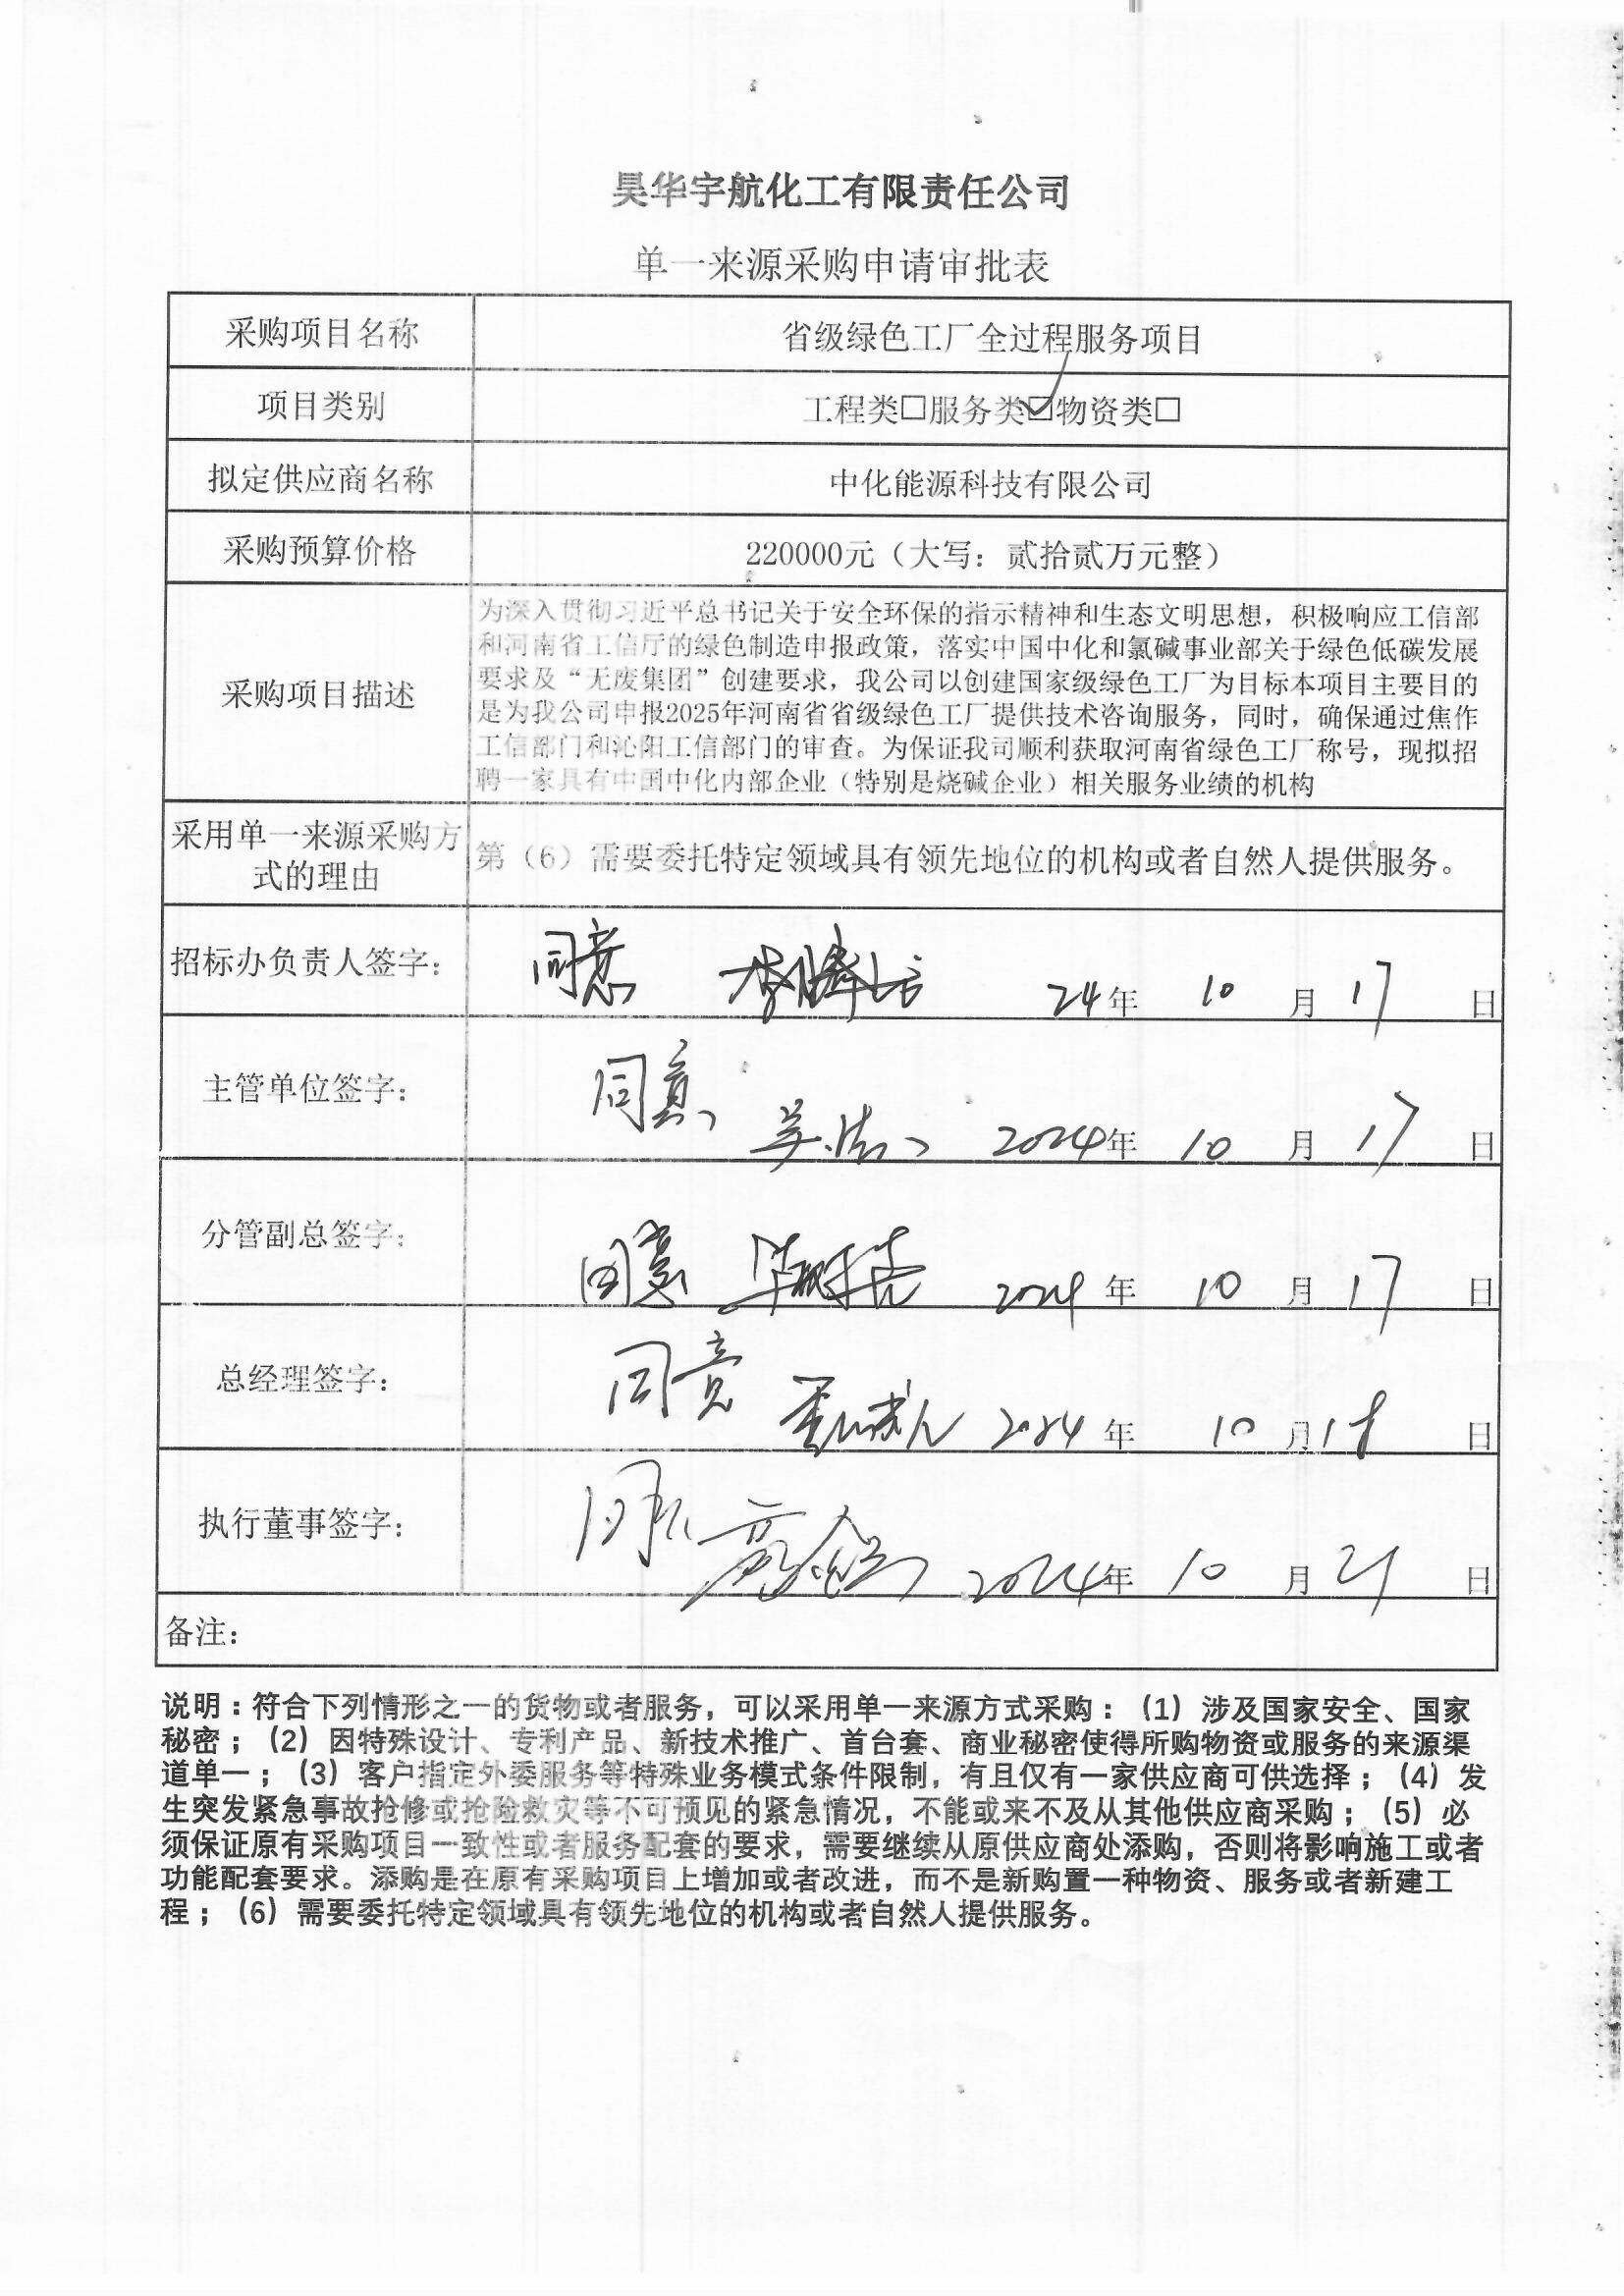 昊华宇航化工有限责任公司
单一来源采购申请审批表
采购项目名称 省级绿色工厂全过程服务项目
项目类别 工程类□服务类☑物资类□
拟定供应商名称 中化能源科技有限公司
采购预算价格 220000元（大写：贰拾贰万元整）
采购项目描述
为深入贯彻习近平总书记关于安全环保的指示精神和生态文明思想，积极响应工信部
和河南省工信厅的绿色制造申报政策，落实中国中化和氯碱事业部关于绿色低碳发展
要求及“无废集团”创建要求，我公司以创建国家级绿色工厂为目标本项目主要目的
是为我公司申报2025年河南省省级绿色工厂提供技术咨询服务，同时，确保通过焦作
工信部门和沁阳工信部门的审查。为保证我司顺利获取河南省绿色工厂称号，现拟招
聘一家具有中国中化内部企业（特别是烧碱企业）相关服务业绩的机构
采用单一来源采购方
式的理由
第（6）需要委托特定领域具有领先地位的机构或者自然人提供服务。
招标办负责人签字： 同意 24年 10 月 17 日
主管单位签字： 同意 2024年 10 月 17 日
分管副总签字： 同意 2024年 10 月 17 日
总经理签字： 同意 2024年 10 月 18 日
执行董事签字： 同意 2024年 10 月 21 日
备注：
说明：符合下列情形之一的货物或者服务，可以采用单一来源方式采购：（1）涉及国家安全、国家
秘密；（2）因特殊设计、专利产品、新技术推广、首台套、商业秘密使得所购物资或服务的来源渠
道单一；（3）客户指定外委服务等特殊业务模式条件限制，有且仅有一家供应商可供选择；（4）发
生突发紧急事故抢修或抢险救灾等不可预见的紧急情况，不能或来不及从其他供应商采购；（5）必
须保证原有采购项目一致性或者服务配套的要求，需要继续从原供应商处添购，否则将影响施工或者
功能配套要求。添购是在原有采购项目上增加或者改进，而不是新购置一种物资、服务或者新建工
程；（6）需要委托特定领域具有领先地位的机构或者自然人提供服务。